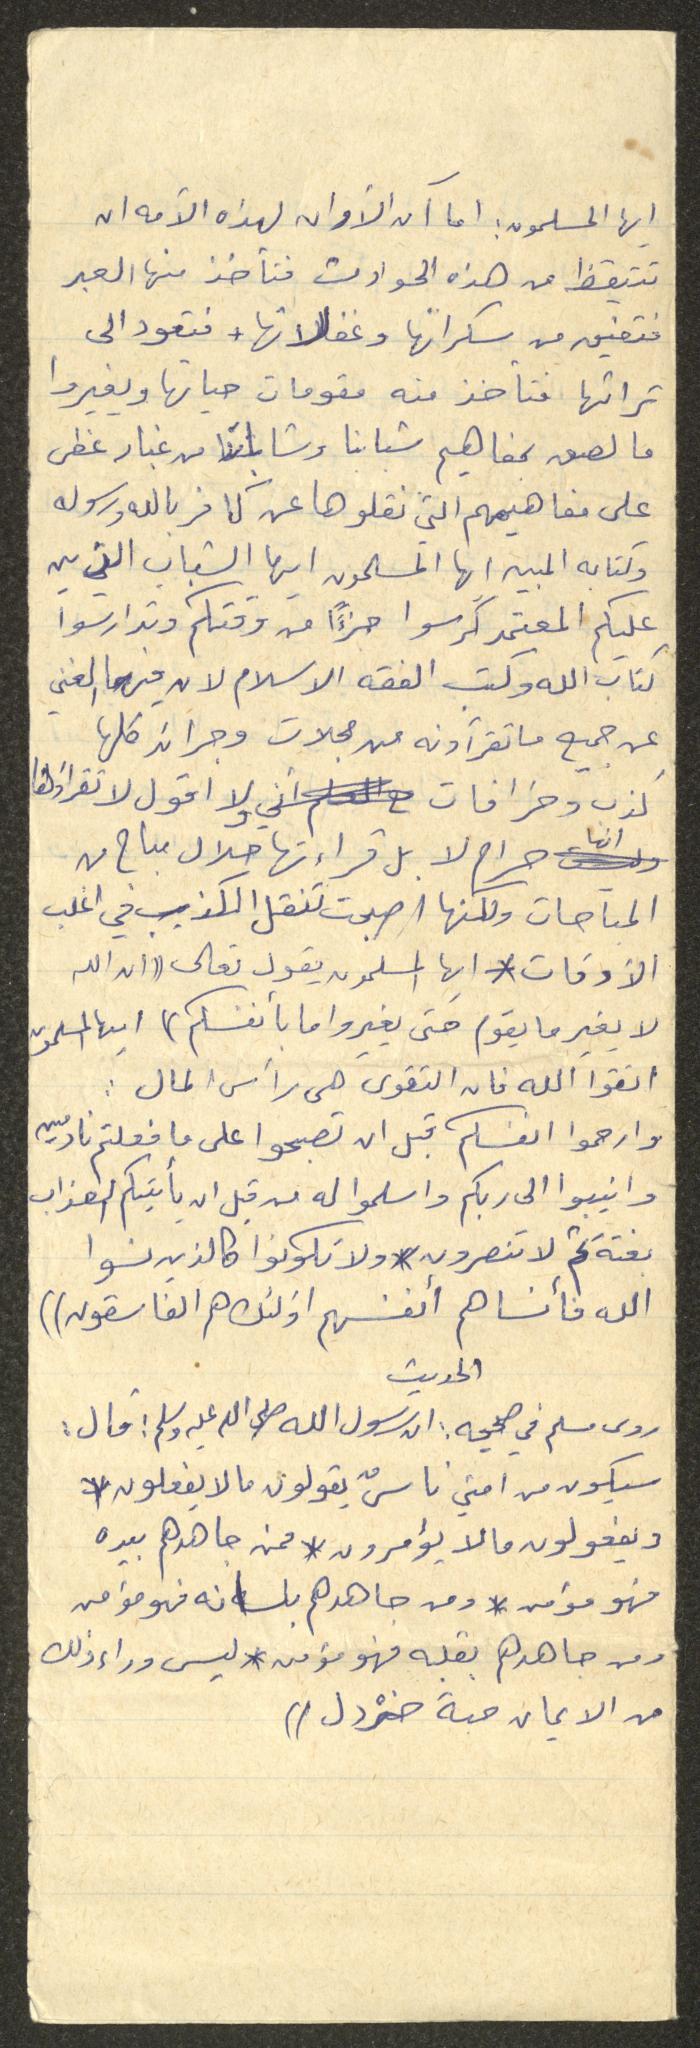 ايها المسلمون: اما آن الأوان لهذه الأمه ان
تتيقظ من هذه الحوادث فتأخذ منها العبر
فتفيق من سكراتها وغفلاتها + فتعود الى
تراثها فتأخذ منه مقومات حياتها ويغيروا
ما لصق بمفاهيم شبابنا وشاباتنا من غبار غطى
على مفاهيمهم التي نقلوها عن كافر بالله ورسوله
وكتابه المبين ايها المسلمون ايها الشباب
عليكم المعتمد كرسوا جزءًا من وقتكم وتدارسوا
كتاب الله وكتب الفقه الاسلام لان فيها الغنى
عن جميع ما تقرأونه من مجلات وجرائد كلها
كذب وخرافات ولا اقول لا تقرأوها
انها حرام لا بل قراءتها حلال مباح من
المباحات ولكنها اصبحت تنقل الكذب في اغلب
الأوقات * ايها المسلمون يقول تعالى ((ان الله
لا يغير ما بقوم حتى يغيروا ما بأنفسكم)) ايها المسلمون
اتقوا الله فان التقوى هى رأس المال :
وارحموا انفسكم قبل ان تصبحوا على ما فعلتم نادمين
وانيبوا الى ربكم واسلموا له من قبل ان يأتيكم العذاب
بغتة ثم لا تنصرون * ولا تكونوا كالذين نسوا
الله فأنساهم أنفسهم اولئك هم الفاسقون))
الحديث
روى مسلم في صحيحه: ان رسول الله صلى الله عليه وسلم: قال:
سيكون من امتي ناسٌ يقولون ما لا يفعلون *
ويفعولون ما لا يؤمرون * فمن جاهدهم بيده
فهو مؤمن * ومن جاهدهم بلسانه فهو مؤمن
ومن جاهدهم بقلبه فهو مؤمن * ليس وراء ذلك
من الايمان حبة خردل ))